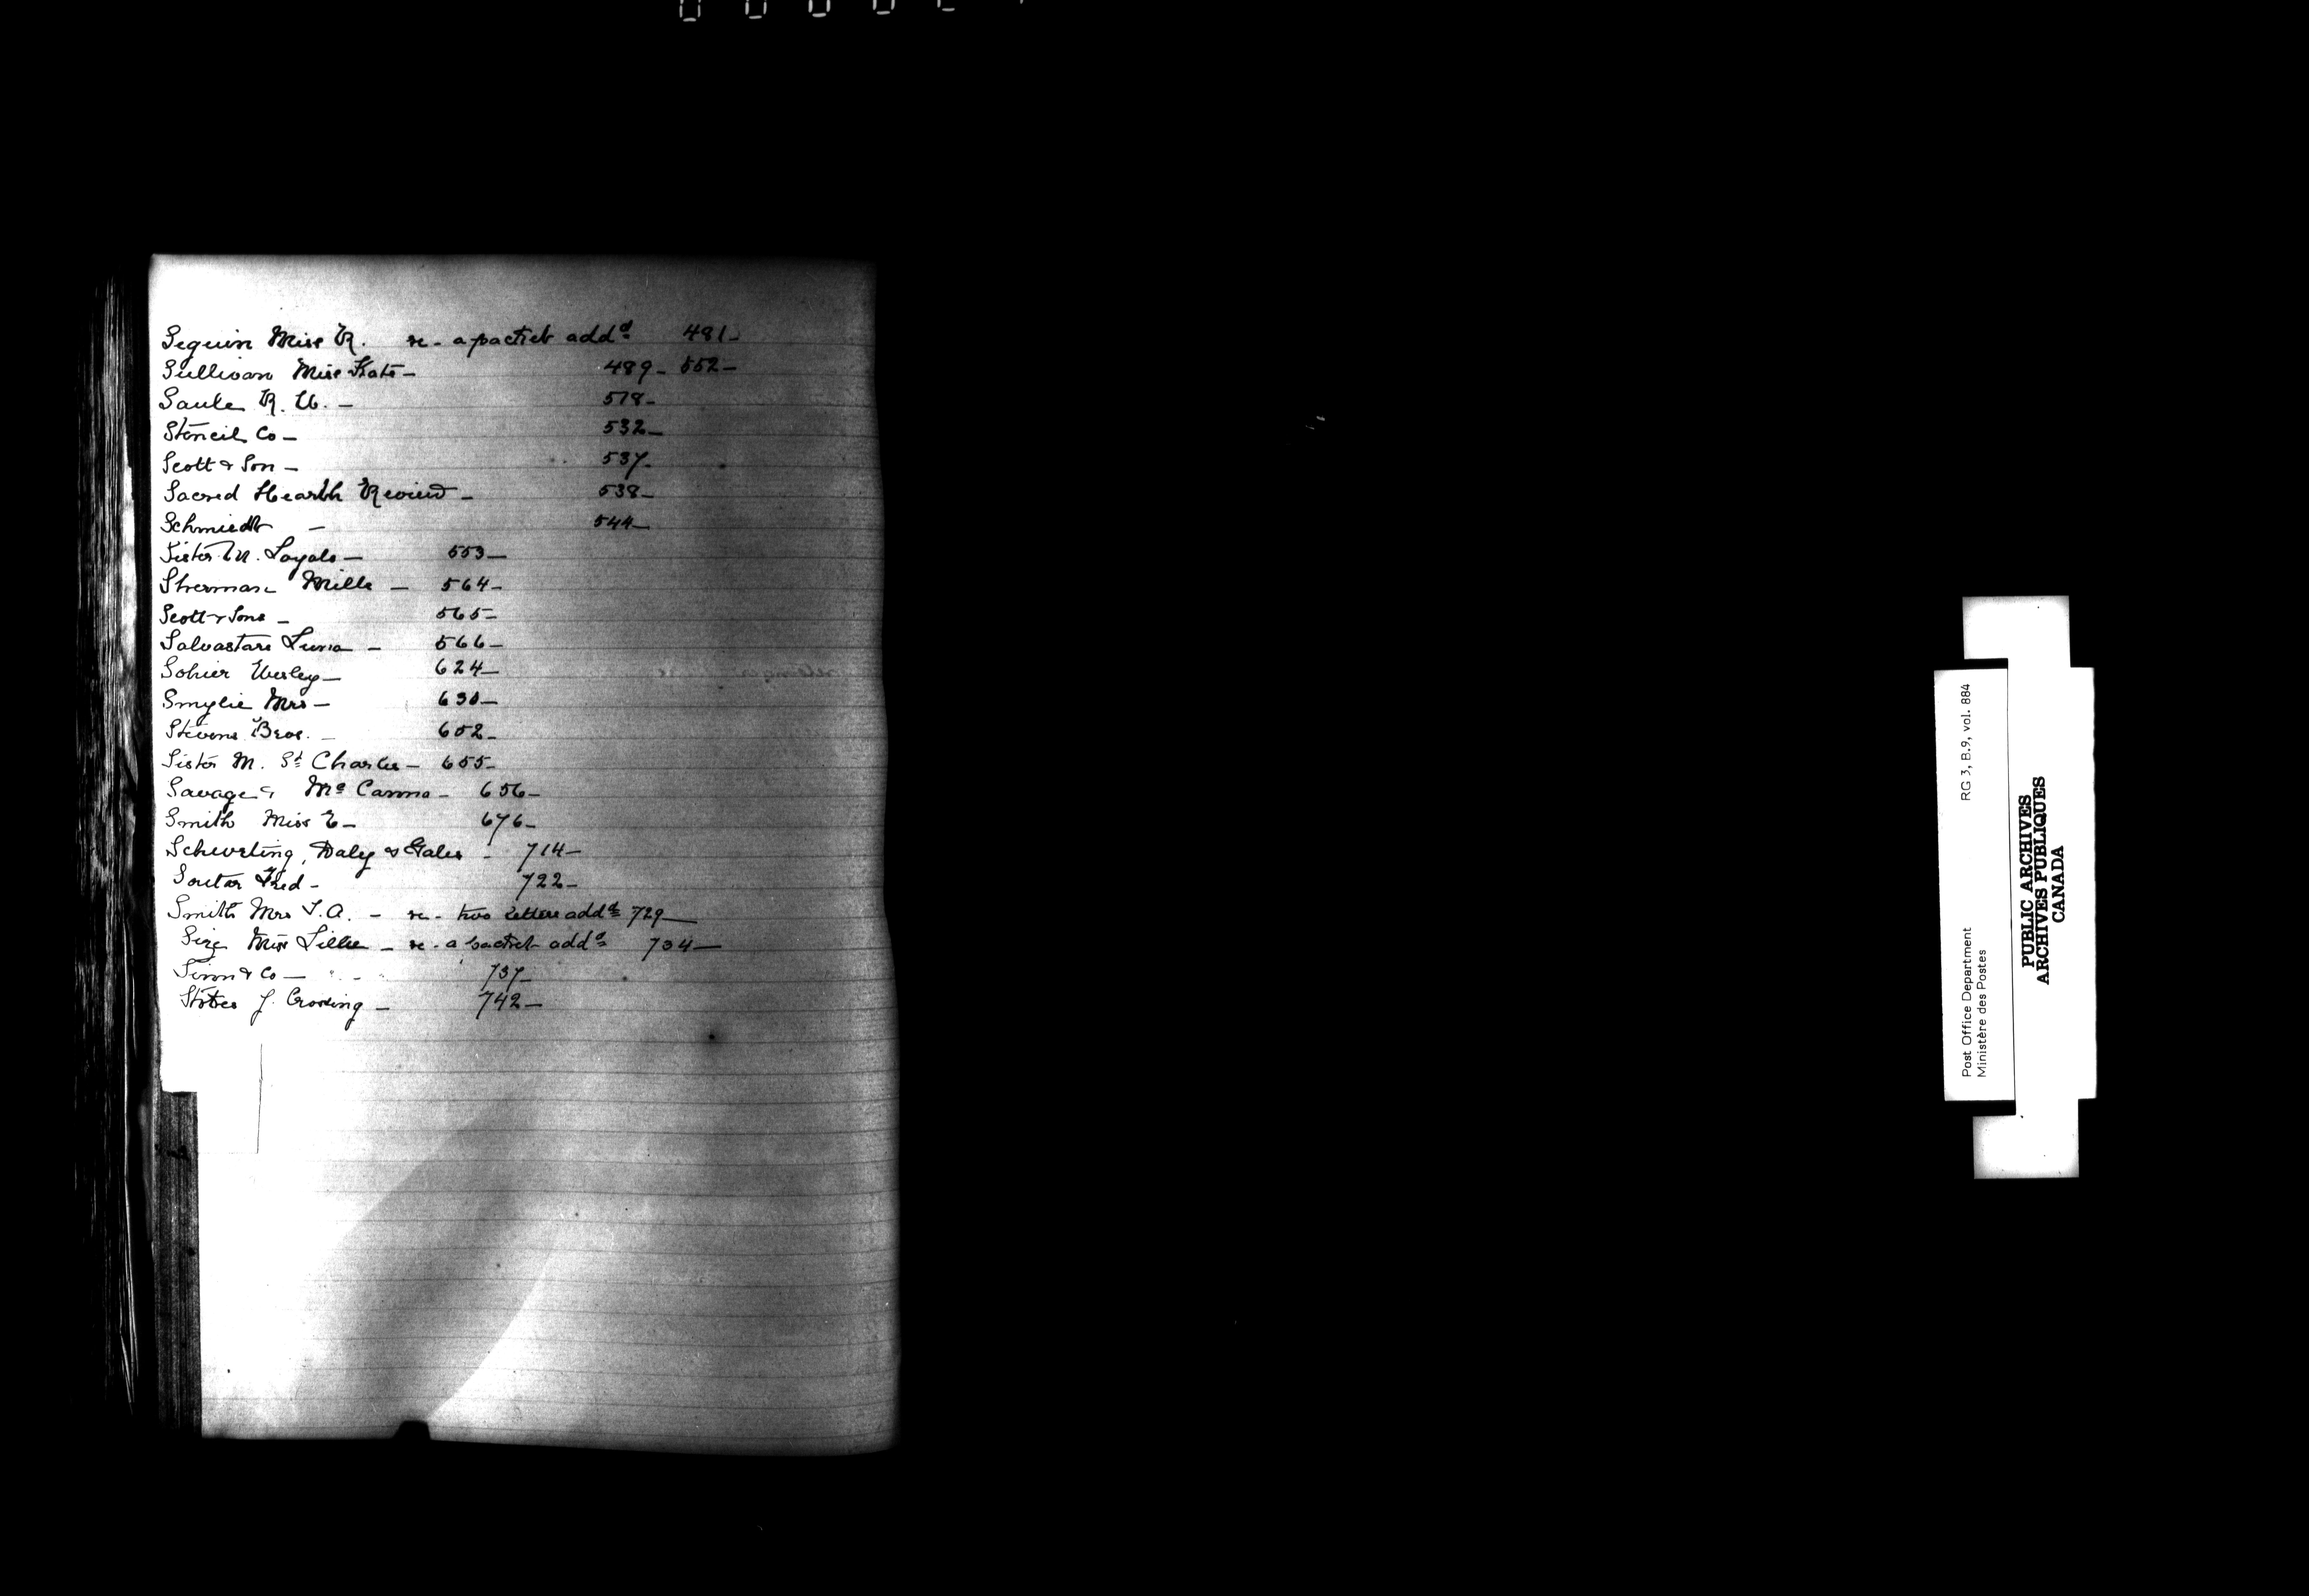 Seguin Miss R. re - a packet addd 481-
Sullivan Miss Kate - 489 - 552-
Saule R. U. - 518-
Stencil Co - 532-
Scott & Son - 537-
Sacred Hearth Review - 538-
Schmiedt - 544-
Sister M. Loyola - 553-
Sherman Mills - 564-
Scott & Sons - 565-
Salvastare Luna - 566-
Sohier Wesley - 624-
Smylie Mrs - 630-
Stevens Bros. - 652-
Sister M. St Charles - 655-
Savage & Mc Canna - 656-
Smith Miss E - 676-
Scheurting, Daly & Gales - 714-
Soutar Fred - 722-
Smith Mrs T. A. - re - two letters addd 729-
Size Miss Lillie - re - a packet addd 734-
Simm & Co - 737-
Stokes J. Crossing - 742-
Post Office Department RG 3, B.9, vol. 884
Ministère des Postes
PUBLIC ARCHIVES
ARCHIVES PUBLIQUES
CANADA